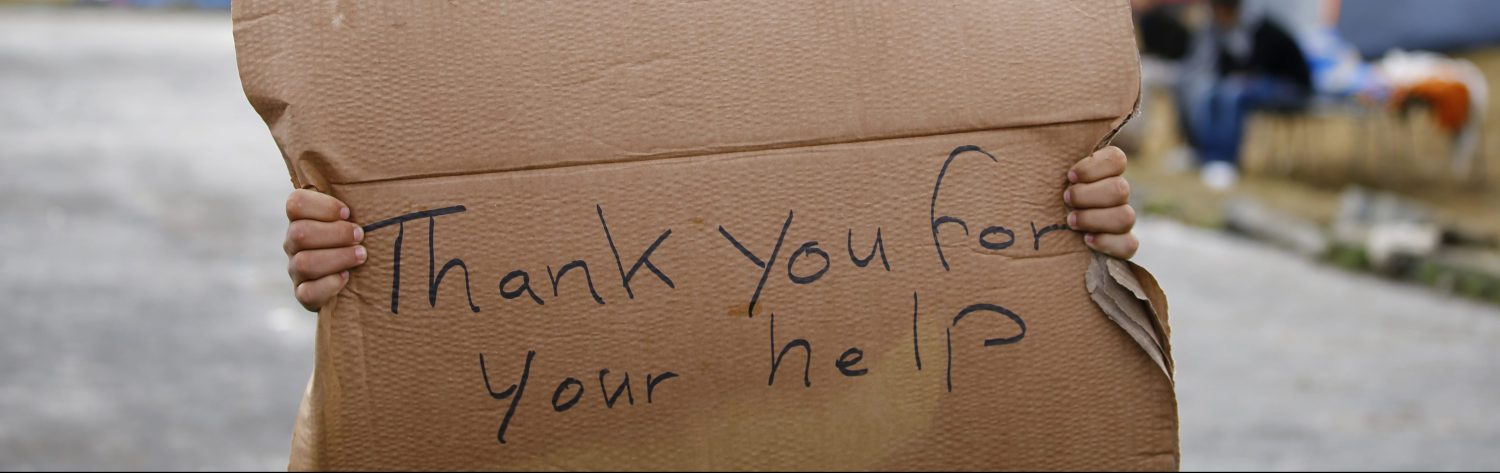 Thank you for
your help